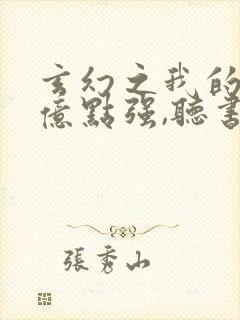 玄幻之我的
億點强,聽書
張秀山